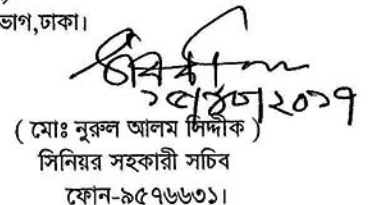 ভাগ,ঢাকা।
( মোঃ নুরুল আলম সিদ্দীক )
সিনিয়র সহকারী সচিব
ফোন-৯৫৭৬৬৩১।